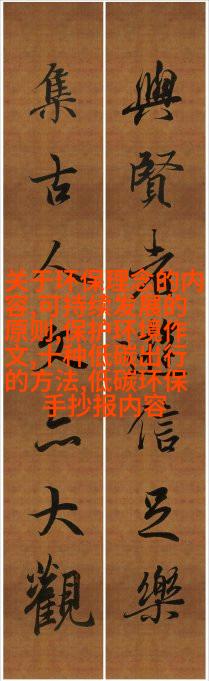 與賢者信足樂
集古人文亦大觀
关于环保理念的内
容,可持续发展的
原则,保护环境作
文,十种低碳出行
的方法,低碳环保
手抄报内容